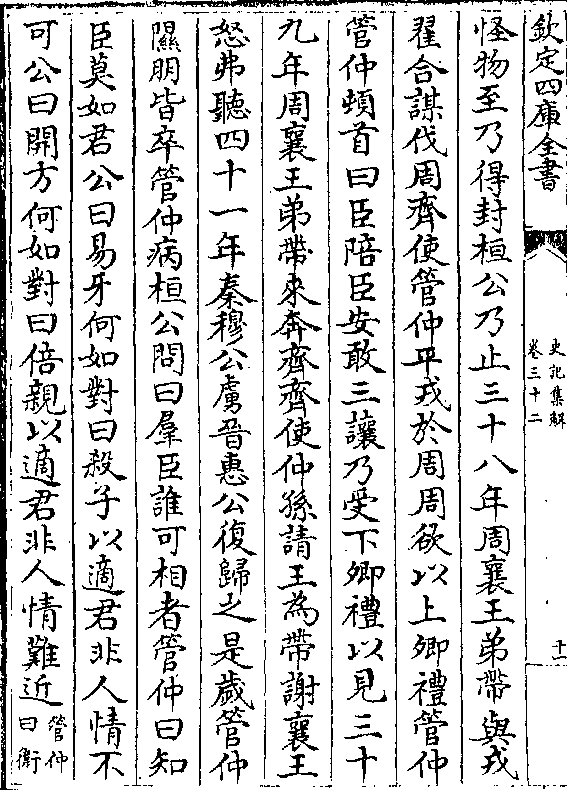 欽定四庫全書
史記集解
卷三十二
十一
怪物至乃得封桓公乃止三十八年周襄王弟帶與戎
翟合謀伐周齊使管仲平戎於周周欲以上卿禮管仲
管仲頓首曰臣陪臣安敢三讓乃受下卿禮以見三十
九年周襄王弟帶來奔齊齊使仲孫請王為帶謝襄王
怒弗聽四十一年秦穆公虜晉惠公復歸之是歲管仲
隰朋皆卒管仲病桓公問曰羣臣誰可相者管仲曰知
臣莫如君公曰易牙何如對曰殺子以適君非人情不
可公曰開方何如對曰倍親以適君非人情難近
管仲
曰衛